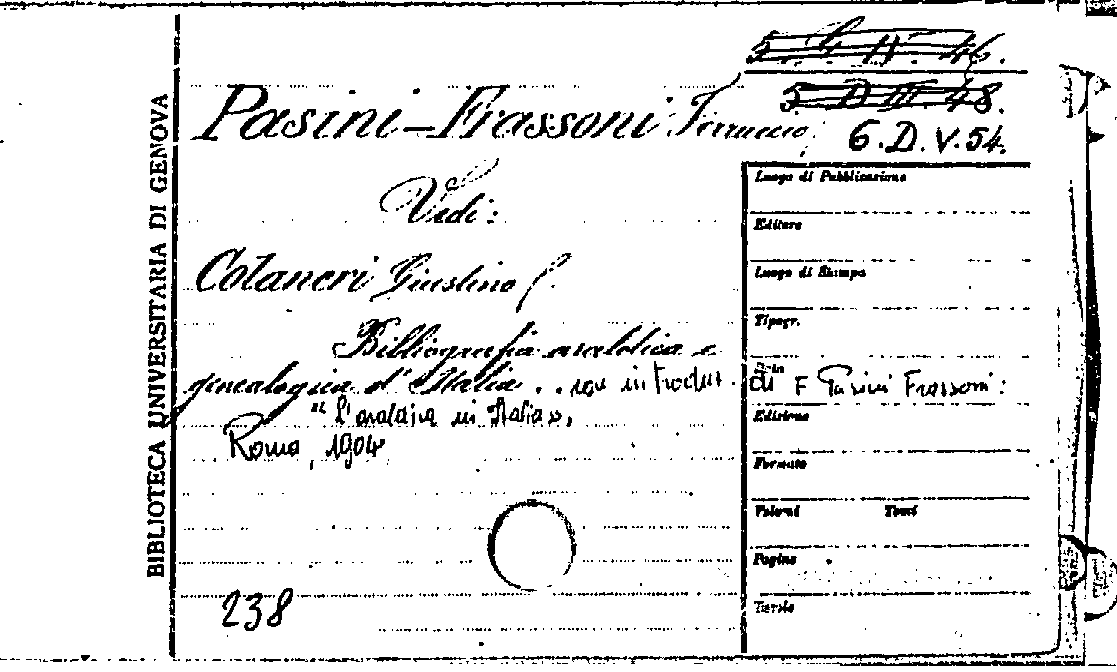 5. G. IV. 46.
5 D III 48.
Pasini-Frassoni Ferruccio
6.D.V.54.
Vedi:
Colaneri Giustino
Bibliografia araldica e
genealogica d'Italia .. con introduz. di F Pasini Frassoni:
"L'araldica in Italia",
Roma, 1904
238
BIBLIOTECA UNIVERSITARIA DI GENOVA
Luogo di Pubblicazione
Editore
Luogo di Stampa
Tipogr.
Data
Edizione
Formato
Volumi Tomi
Pagine
Tavole